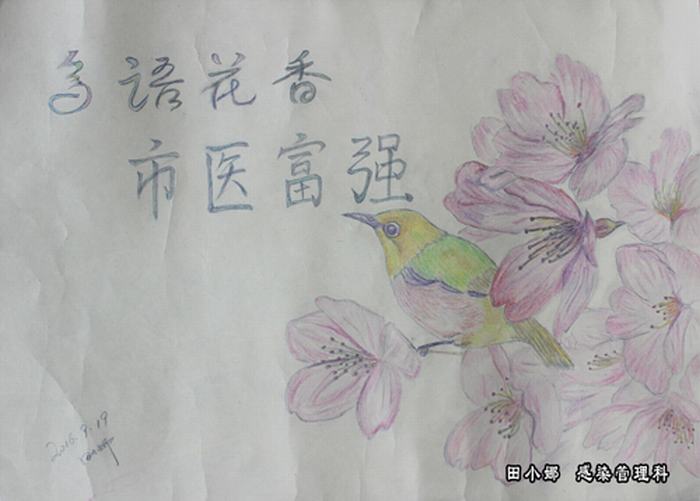 鸟語花香
市医富强
2016.9.19
田小娜 感染管理科